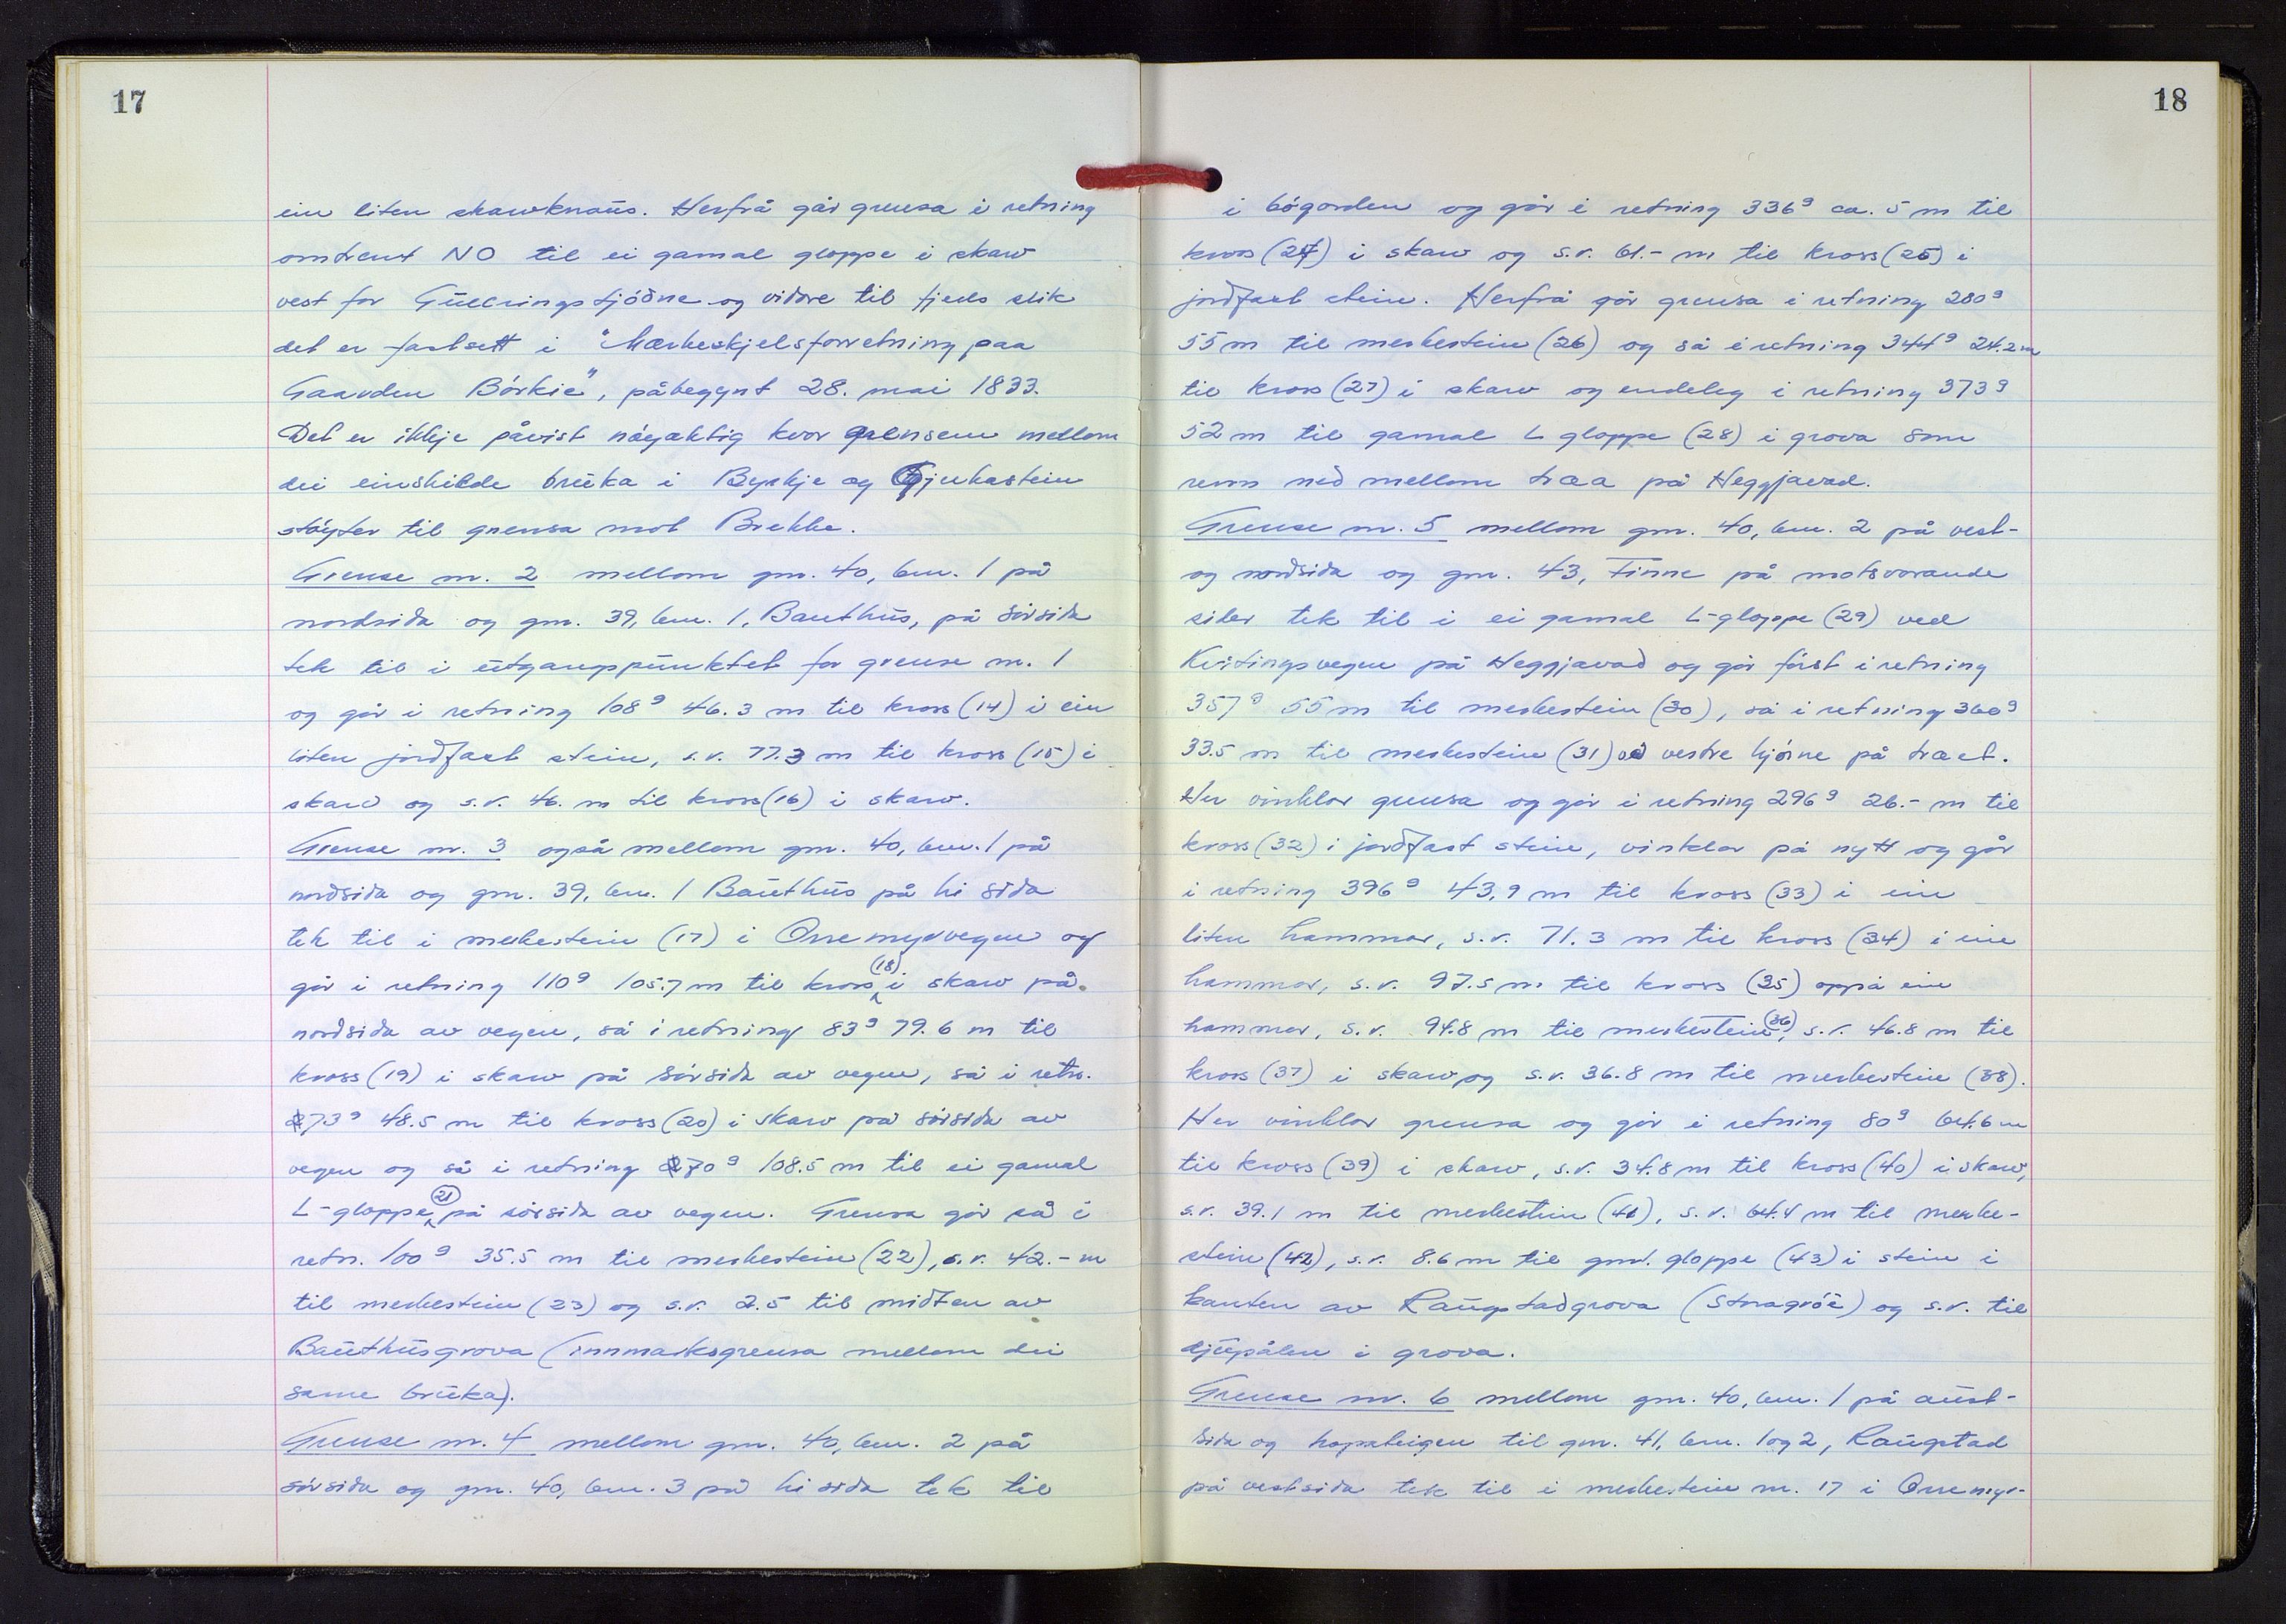 17
ein liten skarvknaus. Herfrå går grensa i retning
omtrent NO til ei gamal gloppe i skarv
vest for Gullringstjödne og vidare til fjells slik
det er fastsett i "Mærkeskjelsforretning paa
Gaarden Börkie", påbegynt 28. mai 1833.
Det er ikkje påvist nöyaktig kvor grensene mellom
dei einskilde bruka i Byrkje og Gjukastein
stöyter til grensa mot Brekke.
Grense nr. 2 mellom gnr. 40, bnr. 1 på
nordsida og gnr. 39, bnr. 1, Bauthus, på sörsida
tek til i utgangspunktet for grense nr. 1
og går i retning 108g 46.3 m til kross (14) i ein
liten jordfast stein, s.v. 77.3 m til kross (15) i
skarv og s.v. 46. m til kross (16) i skarv.
Grense nr. 3 også mellom gnr. 40, bnr. 1 på
nordsida og gnr. 39, bnr. 1 Bauthus på hi sida
tek til i merkestein (17) i Orremyrvegen og
går i retning 110g 105.7 m til kross (18) i skarv på
nordsida av vegen, så i retning 83g 79.6 m til
kross (19) i skarv på sörsida av vegen, så i retn.
73g 48.5 m til kross (20) i skarv på sörsida av
vegen og så i retning 70g 108.5 m til ei gamal
L-gloppe (21) på sörsida av vegen. Grensa går så i
retn. 100g 35.5 m til merkestein (22), s.v. 42.- m
til merkestein (23) og s.v. 2.5 til midten av
Bauthusgrova (innmarksgrensa mellom dei
same bruka).
Grense nr. 4 mellom gnr. 40, bnr. 2 på
sörsida og gnr. 40, bnr. 3 på hi sida tek til
18
i bögarden og går i retning 336g ca. 5 m til
kross (24) i skarv og s.v. 61.- m til kross (25) i
jordfast stein. Herfrå går grensa i retning 280g
55 m til merkestein (26) og så i retning 344g 24.2 m
til kross (27) i skarv og endeleg i retning 373g
52 m til gamal L gloppe (28) i grova som
renn ned mellom træa på Heggjavad.
Grense nr. 5 mellom gnr. 40, bnr. 2 på vest-
og nordsida og gnr. 43, Finne på motsvarande
sider tek til i ei gamal L-gloppe (29) ved
Kvitingsvegen på Heggjavad og går först i retning
357g 55 m til merkestein (30), så i retning 360g
33.5 m til merkestein (31) ved vestre hjörne på træet.
Her vinklar grensa og går i retning 296g 26.- m til
kross (32) i jordfast stein, vinklar på nytt og går
i retning 396g 43,9 m til kross (33) i ein
liten hammar, s.v. 71.3 m til kross (34) i ein
hammar, s.v. 97.5 m til kross (35) oppå ein
hammar, s.v. 94.8 m til merkestein (36), s.v. 46.8 m til
kross (37) i skarv og s.v. 36.8 m til merkestein (38).
Her vinklar grensa og går i retning 80g 64.6 m
til kross (39) i skarv, s.v. 34.8 m til kross (40) i skarv,
s.v. 39.1 m til merkestein (41), s.v. 64.4 m til merke-
stein (42), s.v. 8.6 m til gml. gloppe (43) i stein i
kanten av Raugstadgrova (Storagróé) og s.v. til
djupålen i grova.
Grense nr. 6 mellom gnr. 40, bnr. 1 på aust-
sida og hopateigen til gnr. 41, bnr. 1 og 2, Raugstad
på vestsida tek til i merkestein nr. 17 i Orremyr-